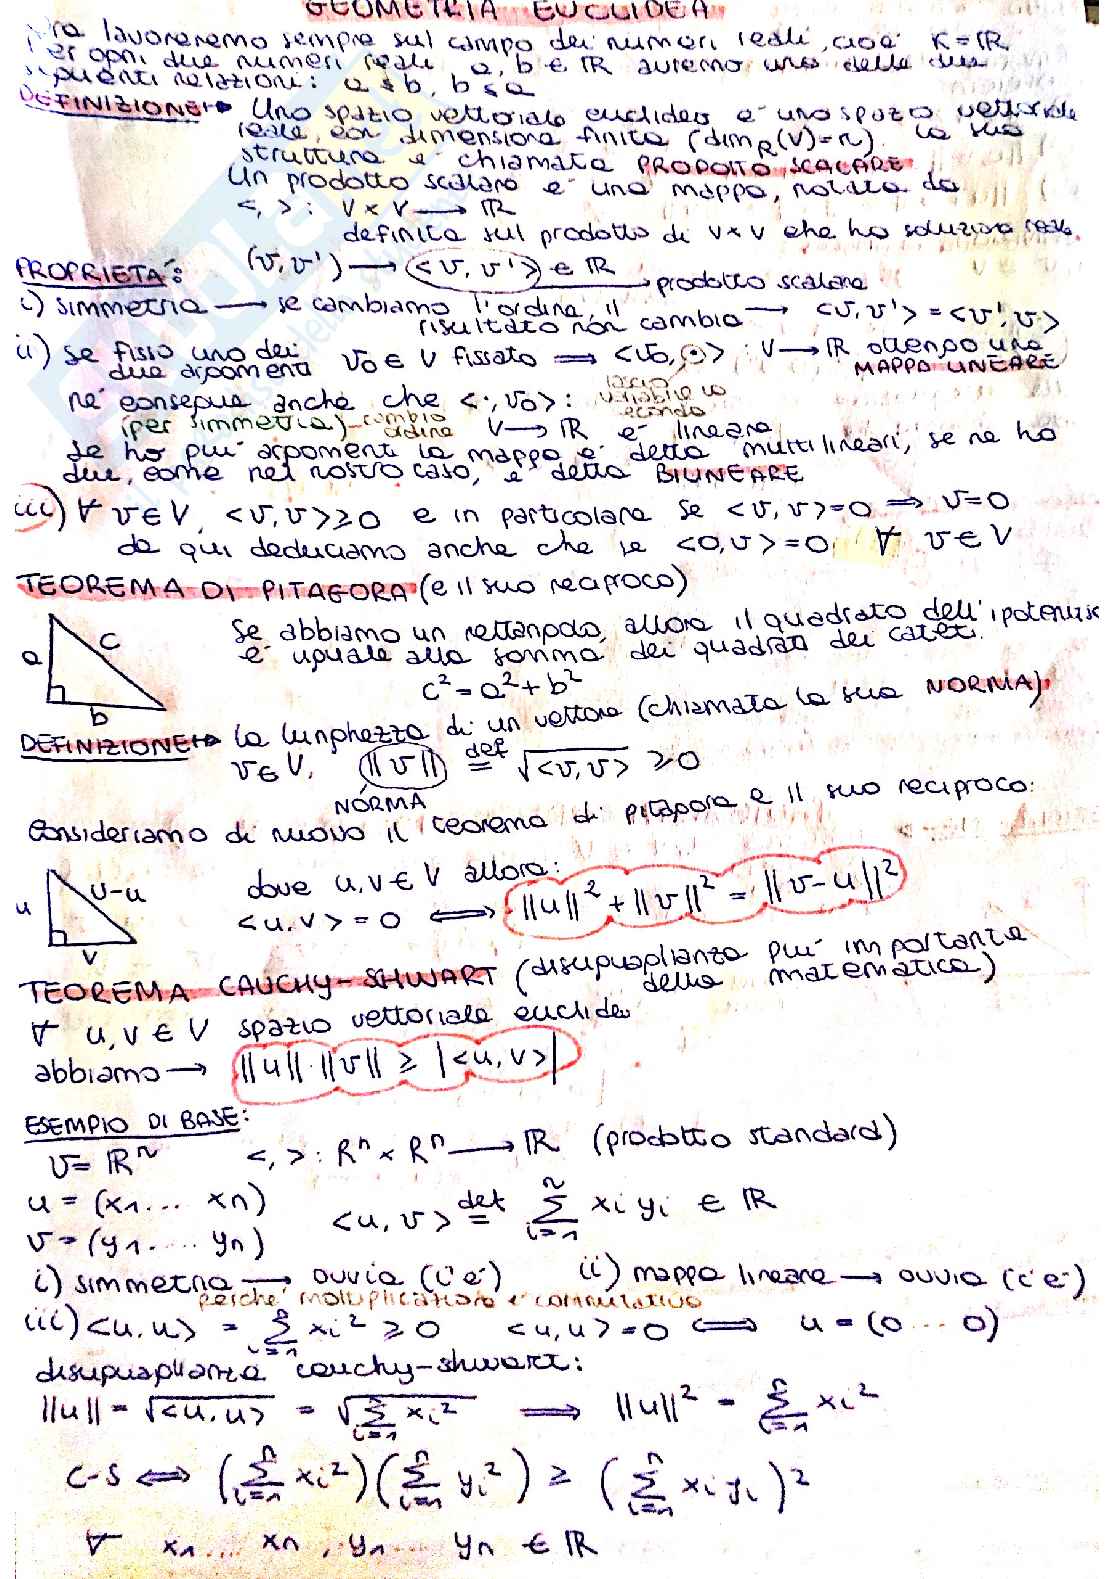 GEOMETRIA EUCLIDEA
lavoreremo sempre sul campo dei numeri reali, cioè K=ℝ
Per ogni due numeri reali a, b ∈ ℝ avremo una delle due
seguenti relazioni: a ≤ b, b ≤ a
DEFINIZIONE → Uno spazio vettoriale euclideo è uno spazio vettoriale
reale, con dimensione finita (dim_R(V)=n). La sua
struttura è chiamata PRODOTTO SCALARE
Un prodotto scalare è una mappa, notata da
<, > : V × V → ℝ
definita sul prodotto di V×V che ha soluzione reale.
PROPRIETÀ: (v, v') → <v, v'> ∈ ℝ → prodotto scalare
i) simmetria → se cambiamo l'ordine, il
risultato non cambia → <v, v'> = <v', v>
ii) se fisso uno dei due argomenti v₀ ∈ V fissato ⟹ <v₀, ⊙> : V → ℝ ottengo una
MAPPA LINEARE
lascio variabile la seconda
né consegue anche che <·, v₀> :
(per simmetria) - cambio ordine V → ℝ è lineare
Se ho più argomenti la mappa è detta multilineari, se ne ho
due, come nel nostro caso, è detta BILINEARE
iii) ∀ v ∈ V, <v, v> ≥ 0 e in particolare se <v, v> = 0 ⟹ v = 0
da qui deduciamo anche che se <0, v> = 0 ∀ v ∈ V
TEOREMA DI PITAGORA (e il suo reciproco)
a c b
Se abbiamo un rettangolo, allora il quadrato dell'ipotenusa
è uguale alla somma dei quadrati dei cateti.
c² = a² + b²
DEFINIZIONE → La lunghezza di un vettore (chiamata la sua NORMA)
v ∈ V, ||v|| def= √<v, v> ≥ 0
NORMA
Consideriamo di nuovo il teorema di pitagora e il suo reciproco:
u v-u v
dove u, v ∈ V allora:
<u, v> = 0 ⟺ ||u||² + ||v||² = ||v-u||²
TEOREMA CAUCHY-SHWART (disuguaglianza più importante
della matematica)
∀ u, v ∈ V spazio vettoriale euclideo
abbiamo → ||u||·||v|| ≥ |<u, v>|
ESEMPIO DI BASE:
V = ℝⁿ <, > : Rⁿ × Rⁿ → ℝ (prodotto standard)
u = (x₁ ... xn)
v = (y₁ .... yn)
<u, v> def= Σⁿᵢ₌₁ xᵢ yᵢ ∈ ℝ
i) simmetria → ovvia (c'è) ii) mappa lineare → ovvia (c'è)
perché moltiplicazione è commutativa
iii) <u, u> = Σⁿᵢ₌₁ xᵢ² ≥ 0 <u, u> = 0 ⟺ u = (0 ... 0)
disuguaglianza cauchy-shwart:
||u|| = √<u, u> = √Σⁿᵢ₌₁ xᵢ² ⟹ ||u||² = Σⁿᵢ₌₁ xᵢ²
C-S ⟺ (Σⁿᵢ₌₁ xᵢ²)(Σⁿᵢ₌₁ yᵢ²) ≥ (Σⁿᵢ₌₁ xᵢ yᵢ)²
∀ x₁ ... xn, y₁ ... yn ∈ ℝ